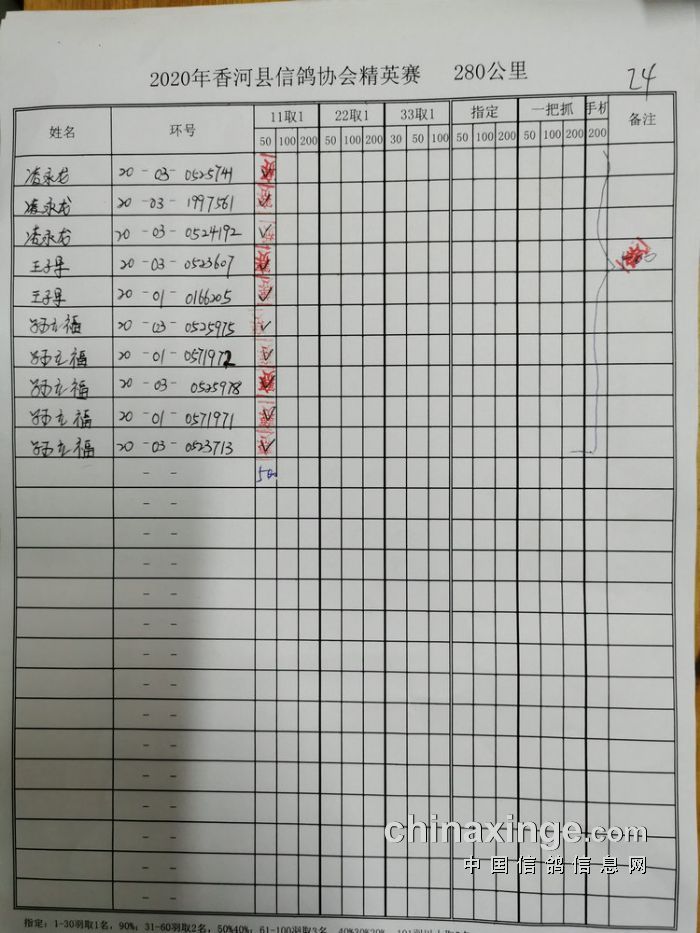 2020年香河县信鸽协会精英赛 280公里
24
姓名 环号 11取1 22取1 33取1 指定 一把抓 手机 备注
50 100 200 50 100 200 30 50 100 50 100 200 50 100 200 200
凌永龙 20-03-0525741 √
凌永龙 20-03-1997561 √
凌永龙 20-03-0524192 √
王子果 20-03-0523607 √
王子果 20-01-0166205 √
孙立福 20-03-0525975 √
孙立福 20-01-0571972 √
孙立福 20-03-0525978 √
孙立福 20-01-0571971 √
孙立福 20-03-0523713 √
- - 500
- -
- -
- -
- -
- -
- -
- -
- -
- -
- -
- -
- -
- -
- -
chinaxinge.com
中国信鸽信息网
指定: 1-30羽取1名, 90%; 31-60羽取2名, 50%40%; 61-100羽取3名, 40%30%20%